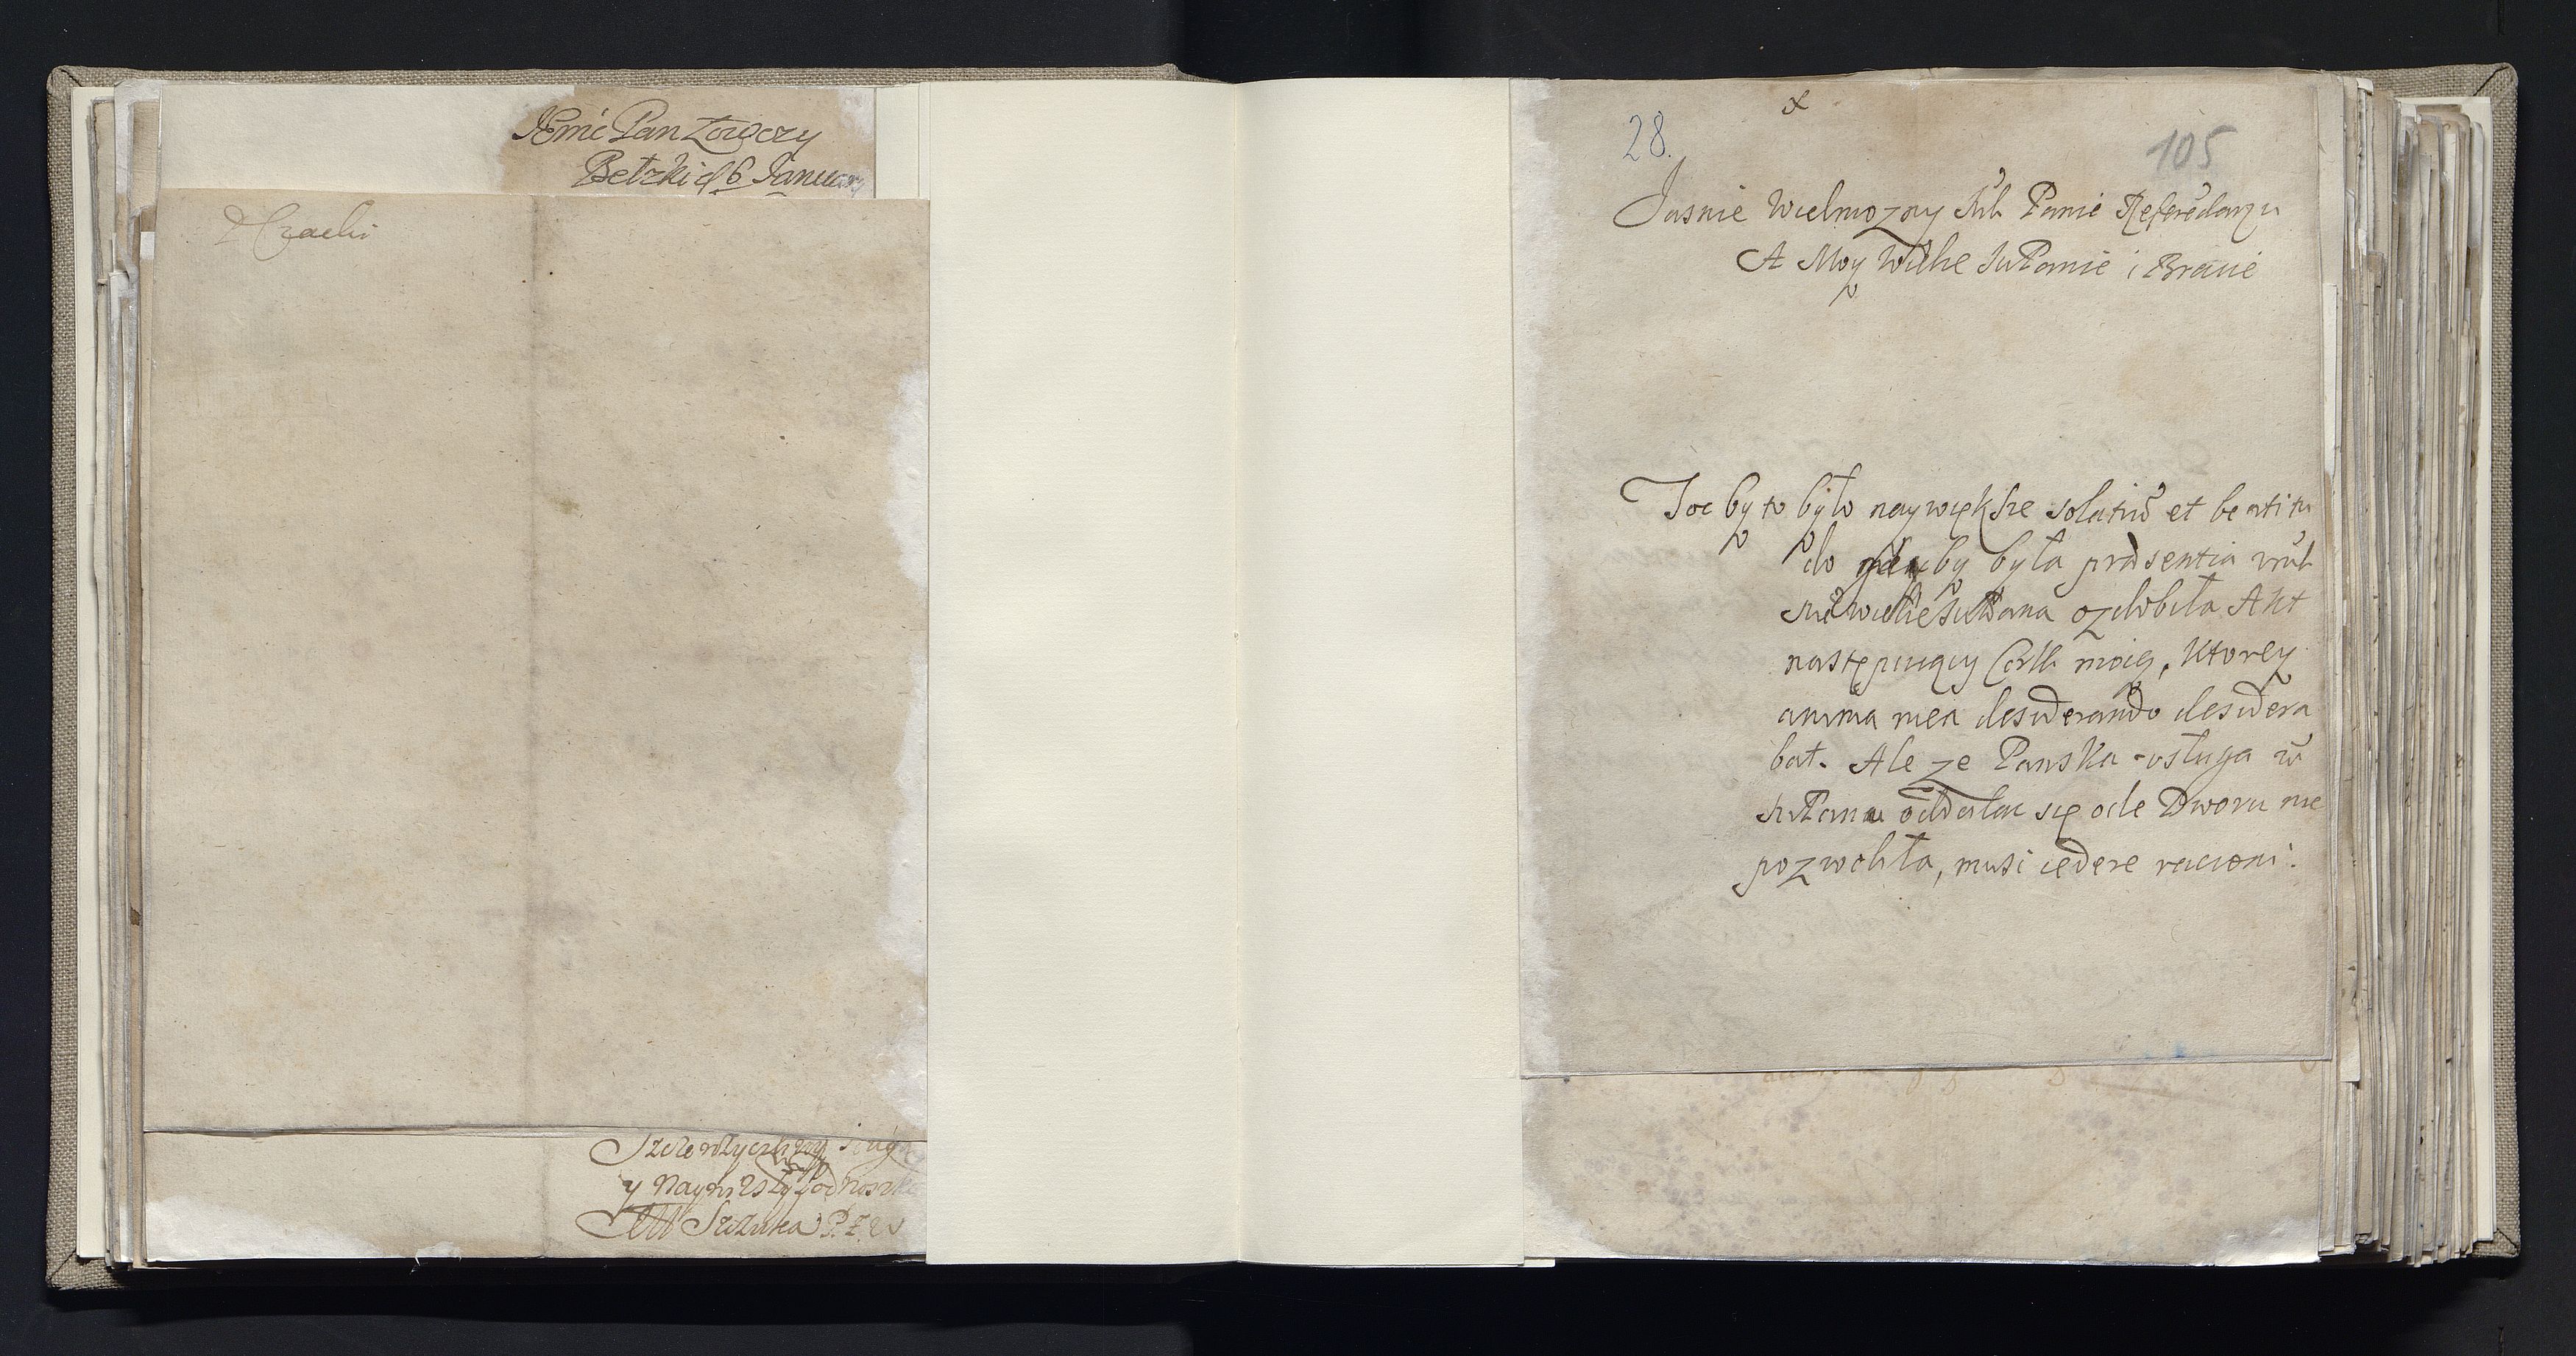 Jmć Pan Łowczy
Bełzki d 6 January
Czacki
Szczerze życzliwy sług
y Naynizszy podnoszk
Szczuka P. Z. W
28.
x
105
Jasnie Wielmozny Mći Panie Referedarzu
A Moy Wielce Mći Panie i Bracie
Toc by to było naywiększe solatiũ et beatitu
do gdyby była præsentia wmći
Mego wielce Mći Pana ozdobiła Akt
następuiący Corki moiey, Ktorey
anima mea desiderando desidera
bat. Ale ze Panska usługa w
Mći Panu oddalac się ode Dworu nie
pozwoliła, musi cedere racioni.